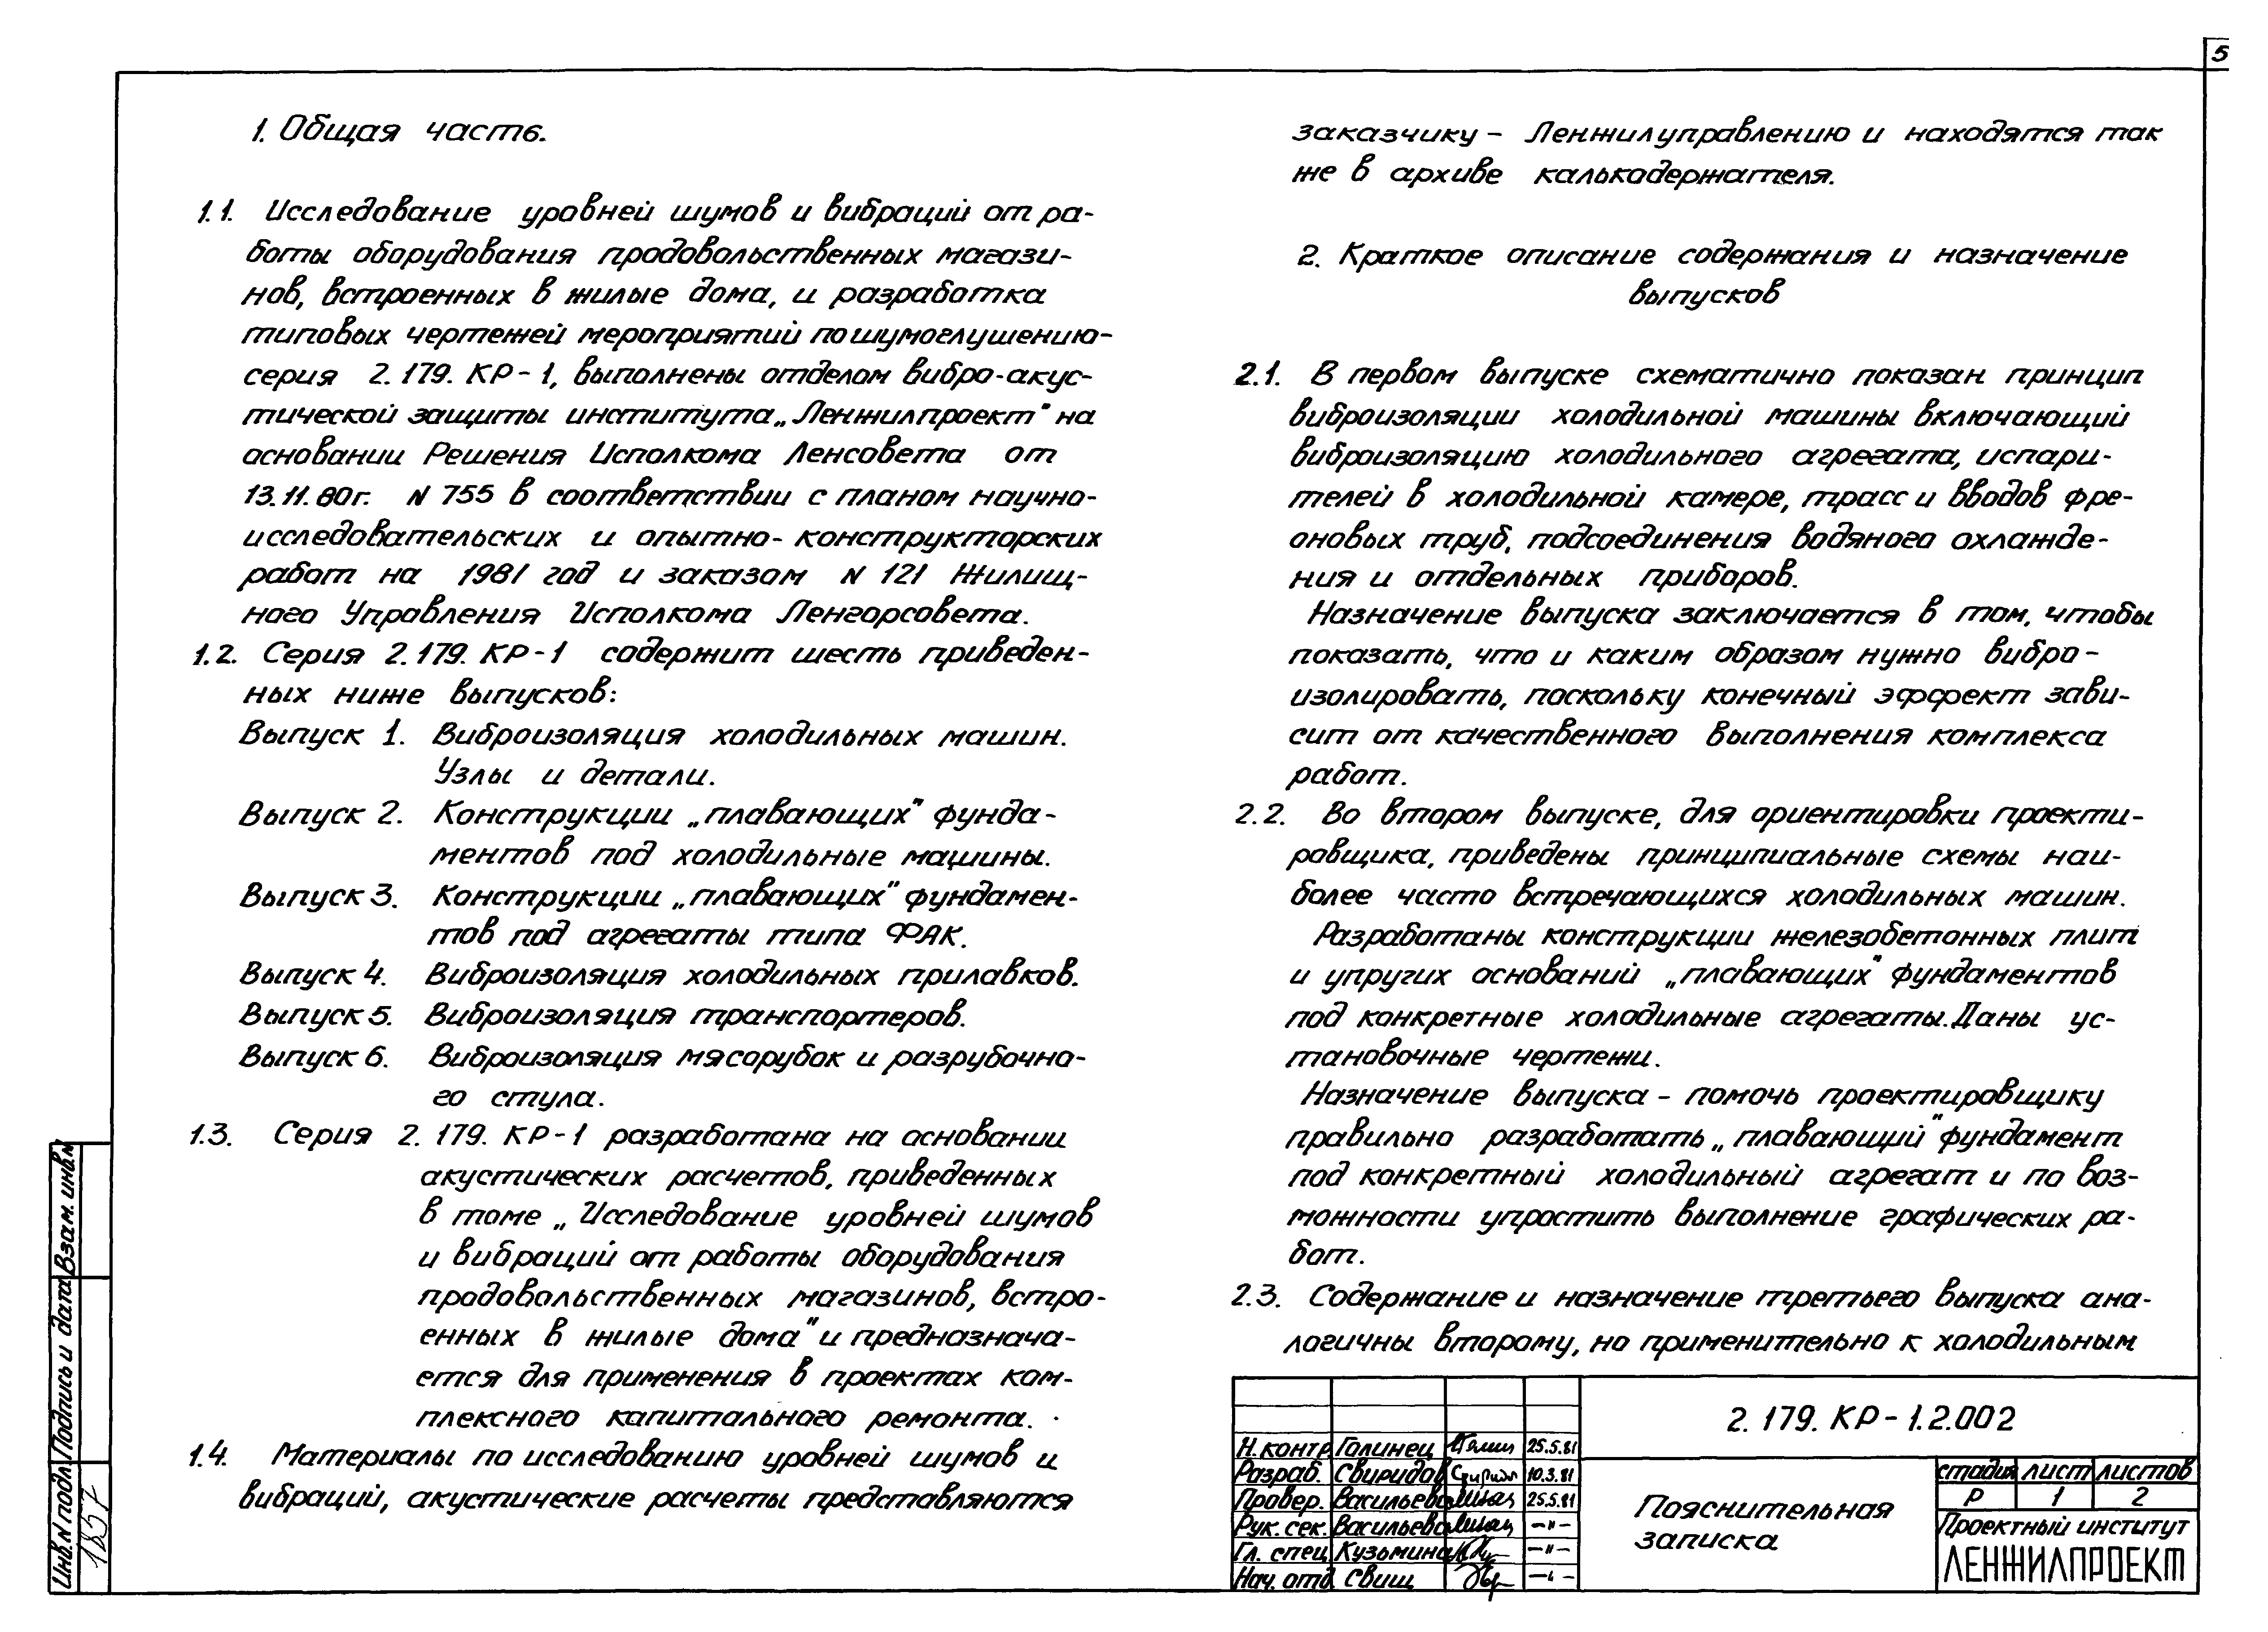 5
1. Общая часть.
1.1. Исследование уровней шумов и вибраций от ра-
боты оборудования продовольственных магази-
нов, встроенных в жилые дома, и разработка
типовых чертежей мероприятий по шумоглушению-
серия 2.179. КР-1, выполнены отделом вибро-акус-
тической защиты института „Ленжилпроект" на
основании Решения Исполкома Ленсовета от
13.11.80г. N 755 в соответствии с планом научно-
исследовательских и опытно-конструкторских
работ на 1981 год и заказом N 121 Жилищ-
ного Управления Исполкома Ленгорсовета.
1.2. Серия 2.179. КР-1 содержит шесть приведен-
ных ниже выпусков:
Выпуск 1. Виброизоляция холодильных машин.
Узлы и детали.
Выпуск 2. Конструкции „плавающих" фунда-
ментов под холодильные машины.
Выпуск 3. Конструкции „плавающих" фундамен-
тов под агрегаты типа ФАК.
Выпуск 4. Виброизоляция холодильных прилавков.
Выпуск 5. Виброизоляция транспортеров.
Выпуск 6. Виброизоляция мясорубок и разрубочно-
го стула.
1.3. Серия 2.179. КР-1 разработана на основании
акустических расчетов, приведенных
в томе „Исследование уровней шумов
и вибраций от работы оборудования
продовольственных магазинов, встро-
енных в жилые дома" и предназнача-
ется для применения в проектах ком-
плексного капитального ремонта.
1.4. Материалы по исследованию уровней шумов и
вибраций, акустические расчеты представляются
заказчику - Ленжилуправлению и находятся так
же в архиве калькодержателя.
2. Краткое описание содержания и назначение
выпусков
2.1. В первом выпуске схематично показан принцип
виброизоляции холодильной машины включающий
виброизоляцию холодильного агрегата, испари-
телей в холодильной камере, трасс и вводов фре-
оновых труб, подсоединения водяного охлажде-
ния и отдельных приборов.
Назначение выпуска заключается в том, чтобы
показать, что и каким образом нужно вибро-
изолировать, поскольку конечный эффект зави-
сит от качественного выполнения комплекса
работ.
2.2. Во втором выпуске, для ориентировки проекти-
ровщика, приведены принципиальные схемы наи-
более часто встречающихся холодильных машин.
Разработаны конструкции железобетонных плит
и упругих оснований „плавающих" фундаментов
под конкретные холодильные агрегаты. Даны ус-
тановочные чертежи.
Назначение выпуска - помочь проектировщику
правильно разработать „плавающий" фундамент
под конкретный холодильный агрегат и по воз-
можности упростить выполнение графических ра-
бот.
2.3. Содержание и назначение третьего выпуска ана-
логичны второму, но применительно к холодильным
2.179. КР-1.2.002
Н.контр. Голинец 25.5.81
Разраб. Свиридов 10.3.81
Провер. Васильева 25.5.81
Рук. сек. Васильева -"-
Гл. спец Кузьмина -"-
Нач. отд Свищ -"-
Пояснительная
записка
стадия лист листов
Р 1 2
Проектный институт
ЛЕНЖИЛПРОЕКТ
Взам. инв.N
Подпись и дата
Инв. N подл.